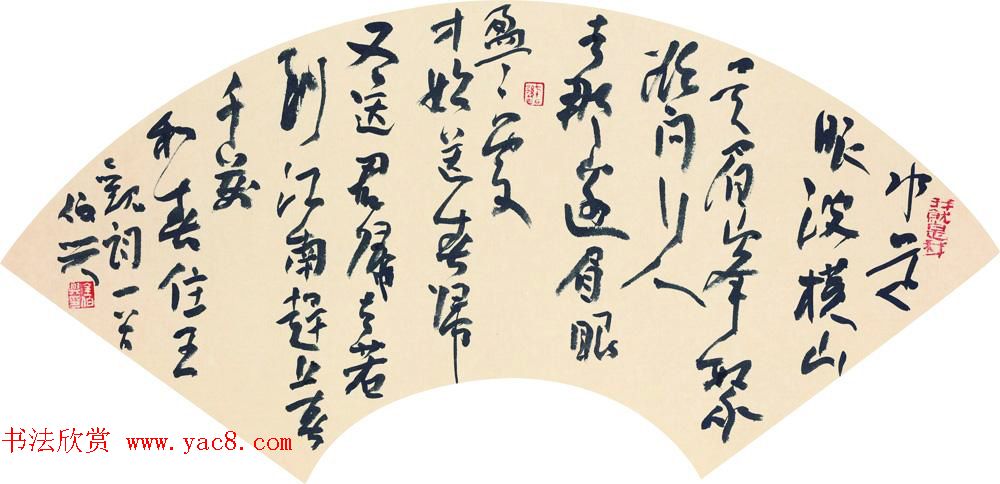 水是
眼波横山
是眉峰聚
欲问行人
去那边眉眼
盈々处
才始送春归
又送君归去若
到江南赶上春
千万
和春住王
观词一首
伯
书法欣赏 www.yac8.com